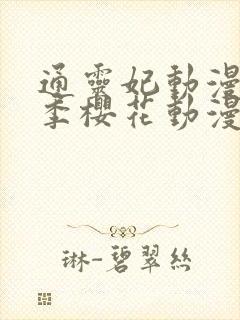 通靈妃動漫
季櫻花動漫
琳-碧翠絲